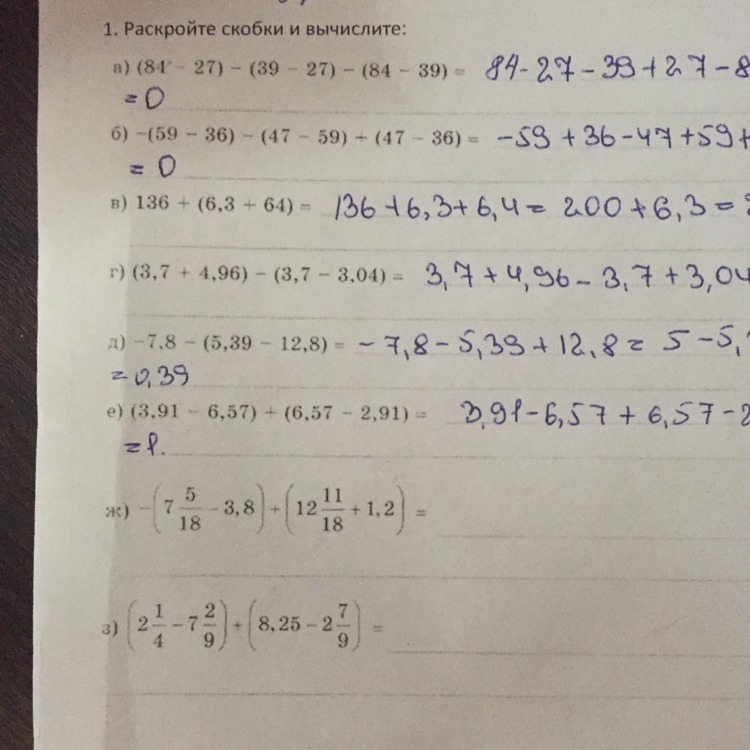 1. Раскройте скобки и вычислите:
а) (84 − 27) − (39 − 27) − (84 − 39) = 84-27-39+27-8
= 0
б) −(59 − 36) − (47 − 59) + (47 − 36) = -59+36-47+59+
= 0
в) 136 + (6,3 + 64) = 136+6,3+6,4= 200+6,3=
г) (3,7 + 4,96) − (3,7 − 3,04) = 3,7+4,96-3,7+3,04
д) −7,8 − (5,39 − 12,8) = -7,8-5,39+12,8= 5-5,
=0,39
е) (3,91 − 6,57) + (6,57 − 2,91) = 3,91-6,57+6,57-2
=1.
ж) −(7 5/18 − 3,8) + (12 11/18 + 1,2) =
з) (2 1/4 − 7 2/9) + (8,25 − 2 7/9) =